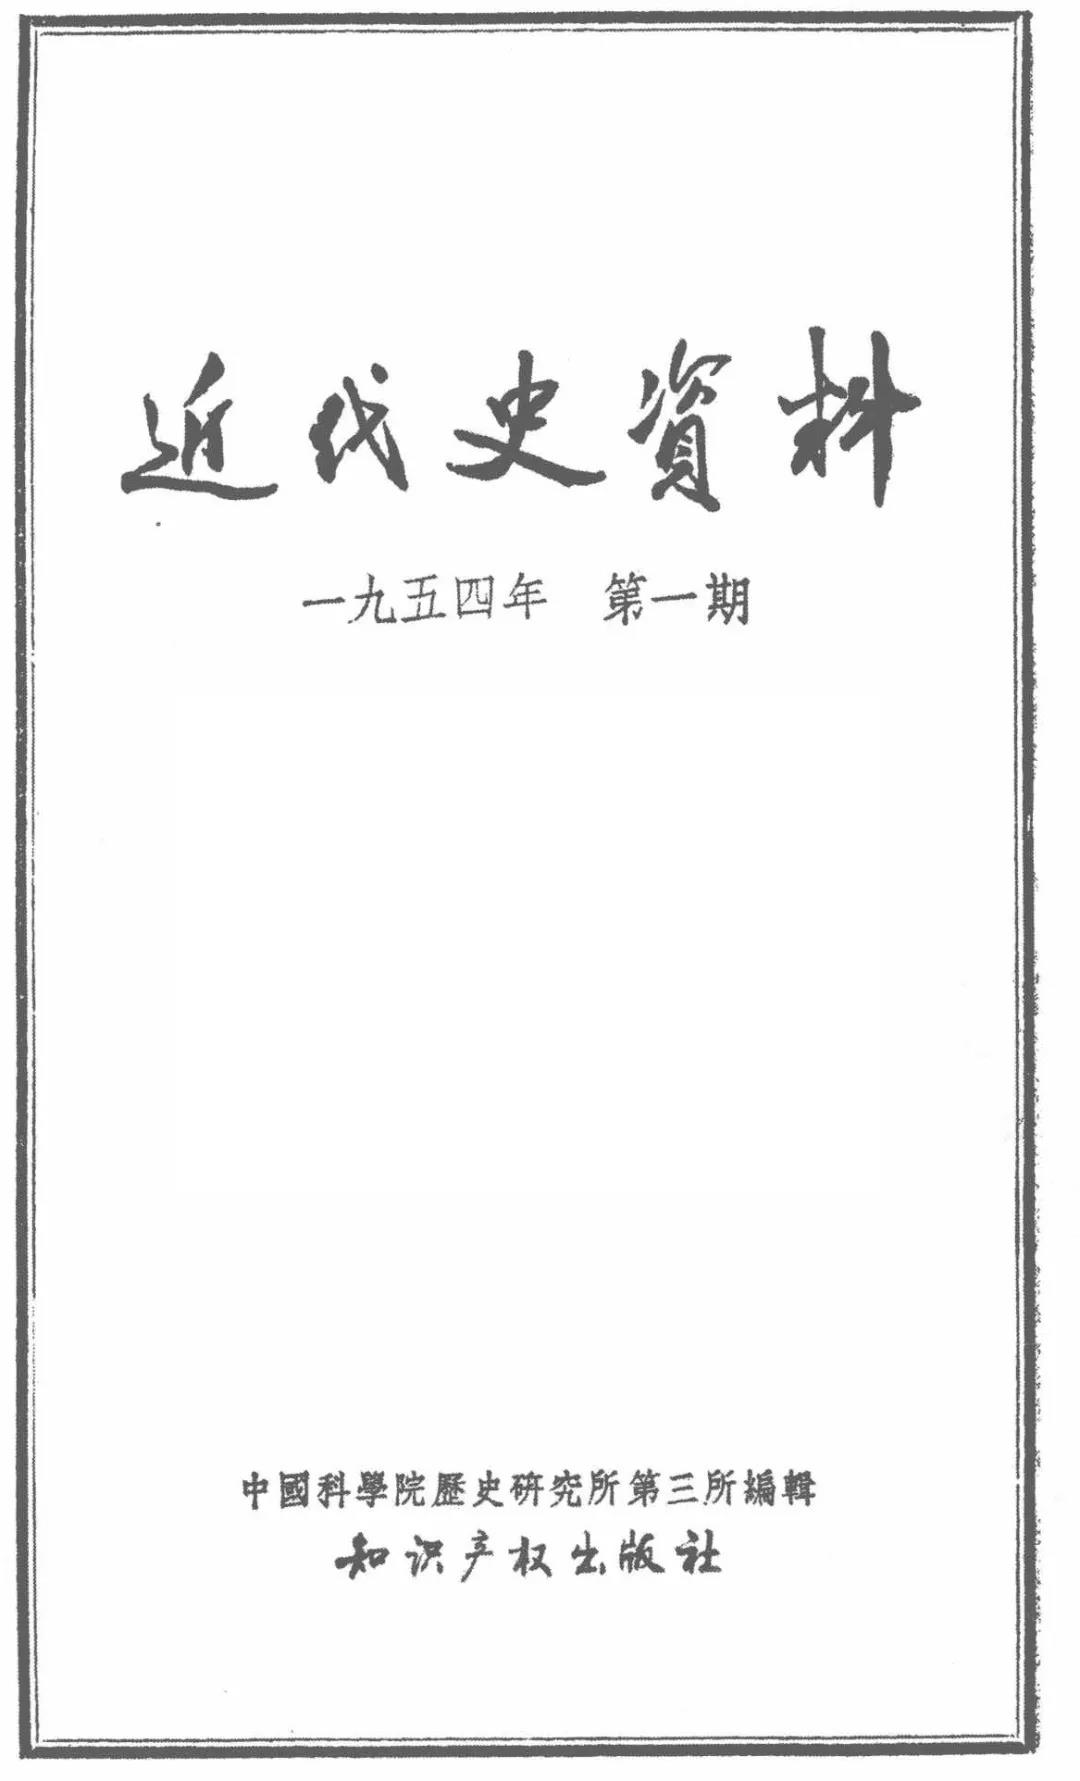 近代史資料
一九五四年 第一期
中國科學院歷史研究所第三所編輯
知识产权出版社